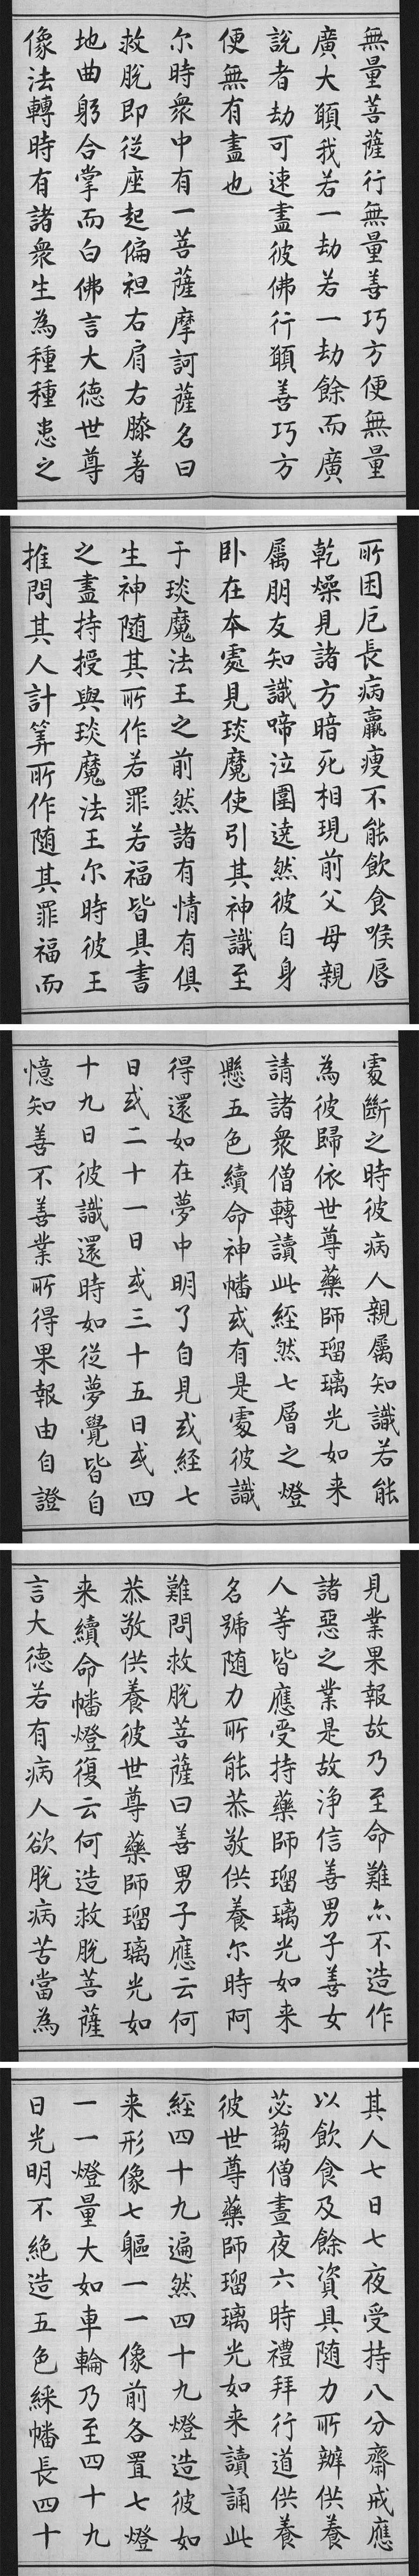 無量菩薩行無量善巧方便無量
廣大願我若一劫若一劫餘而廣
說者劫可速盡彼佛行願善巧方
便無有盡也
尔時衆中有一菩薩摩訶薩名曰
救脫即從座起偏袒右肩右膝著
地曲躬合掌而白佛言大德世尊
像法轉時有諸衆生為種種患之
所困厄長病羸瘦不能飲食喉唇
乾燥見諸方暗死相現前父母親
屬朋友知識啼泣圍遶然彼自身
卧在本處見琰魔使引其神識至
于琰魔法王之前然諸有情有俱
生神随其所作若罪若福皆具書
之盡持授與琰魔法王尔時彼王
推問其人計筭所作随其罪福而
處斷之時彼病人親屬知識若能
為彼歸依世尊藥師瑠璃光如来
請諸衆僧轉讀此経然七層之燈
懸五色續命神幡或有是處彼識
得還如在夢中明了自見或経七
日或二十一日或三十五日或四
十九日彼識還時如從夢覺皆自
憶知善不善業所得果報由自證
見業果報故乃至命難亦不造作
諸惡之業是故净信善男子善女
人等皆應受持藥師瑠璃光如来
名號随力所能恭敬供養尔時阿
難問救脫菩薩曰善男子應云何
恭敬供養彼世尊藥師瑠璃光如
来續命幡燈復云何造救脫菩薩
言大德若有病人欲脫病苦當為
其人七日七夜受持八分齋戒應
以飲食及餘資具随力所辦供養
苾蒭僧晝夜六時禮拜行道供養
彼世尊藥師瑠璃光如来讀誦此
経四十九遍然四十九燈造彼如
来形像七軀一一像前各置七燈
一一燈量大如車輪乃至四十九
日光明不絶造五色綵幡長四十